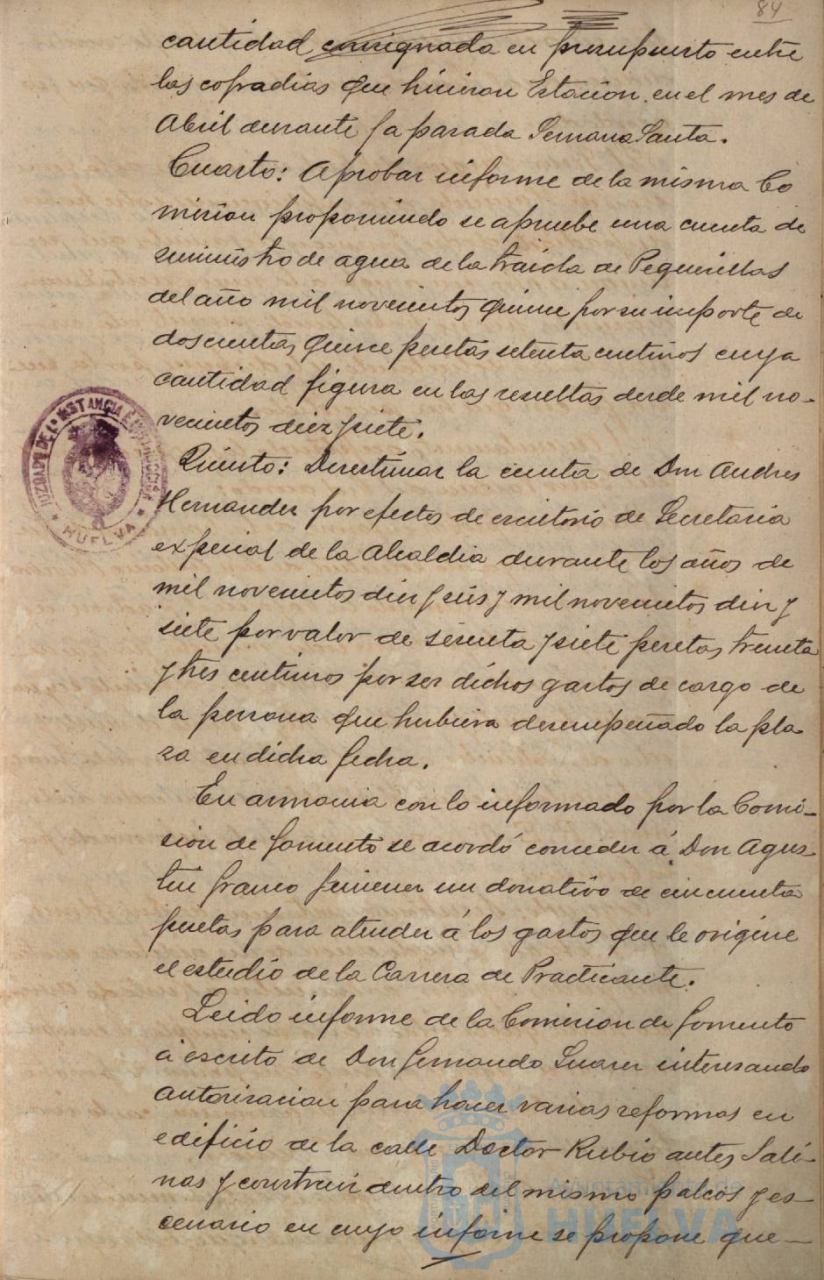 84
cantidad consignada en presupuesto entre
las cofradias que hicieron Estacion en el mes de
Abril durante la parada Semana Santa.
Cuarto: Aprobar informe de la misma Co
mision proponiendo se apruebe una cuenta de
suministro de agua de la traida de Peguerillas
del año mil novecientos quince por su importe de
doscientas quince pesetas setenta centimos cuya
cantidad figura en las resultas desde mil no-
vecientos diez y siete.
Quinto: Desestimar la cuenta de Don Andres
Hernandez por efectos de escritorio de Secretaria
especial de la Alcaldia durante los años de
mil novecientos diez y seis y mil novecientos diez y
siete por valor de sesenta y siete pesetas treinta
y tres centimos por ser dichos gastos de cargo de
la persona que hubiera desempeñado la pla
za en dicha fecha.
En armonia con lo informado por la Comi-
sion de fomento se acordó conceder á Don Agus-
tin Franco Jimenez un donativo de cincuenta
pesetas para atender á los gastos que le origine
el estudio de la Carrera de Practicante.
Leido informe de la Comision de fomento
á escrito de Don Fernando Suarez interesando
autorizacion para hacer varias reformas en
edificio de la calle Doctor Rubio antes Sali-
nas y construir dentro del mismo palcos y es-
cenario en cuyo informe se propone que-
JUZGADO DE 1ª INSTANCIA E INSTRUCCION
* HUELVA *
Ayuntamiento de
HUELVA